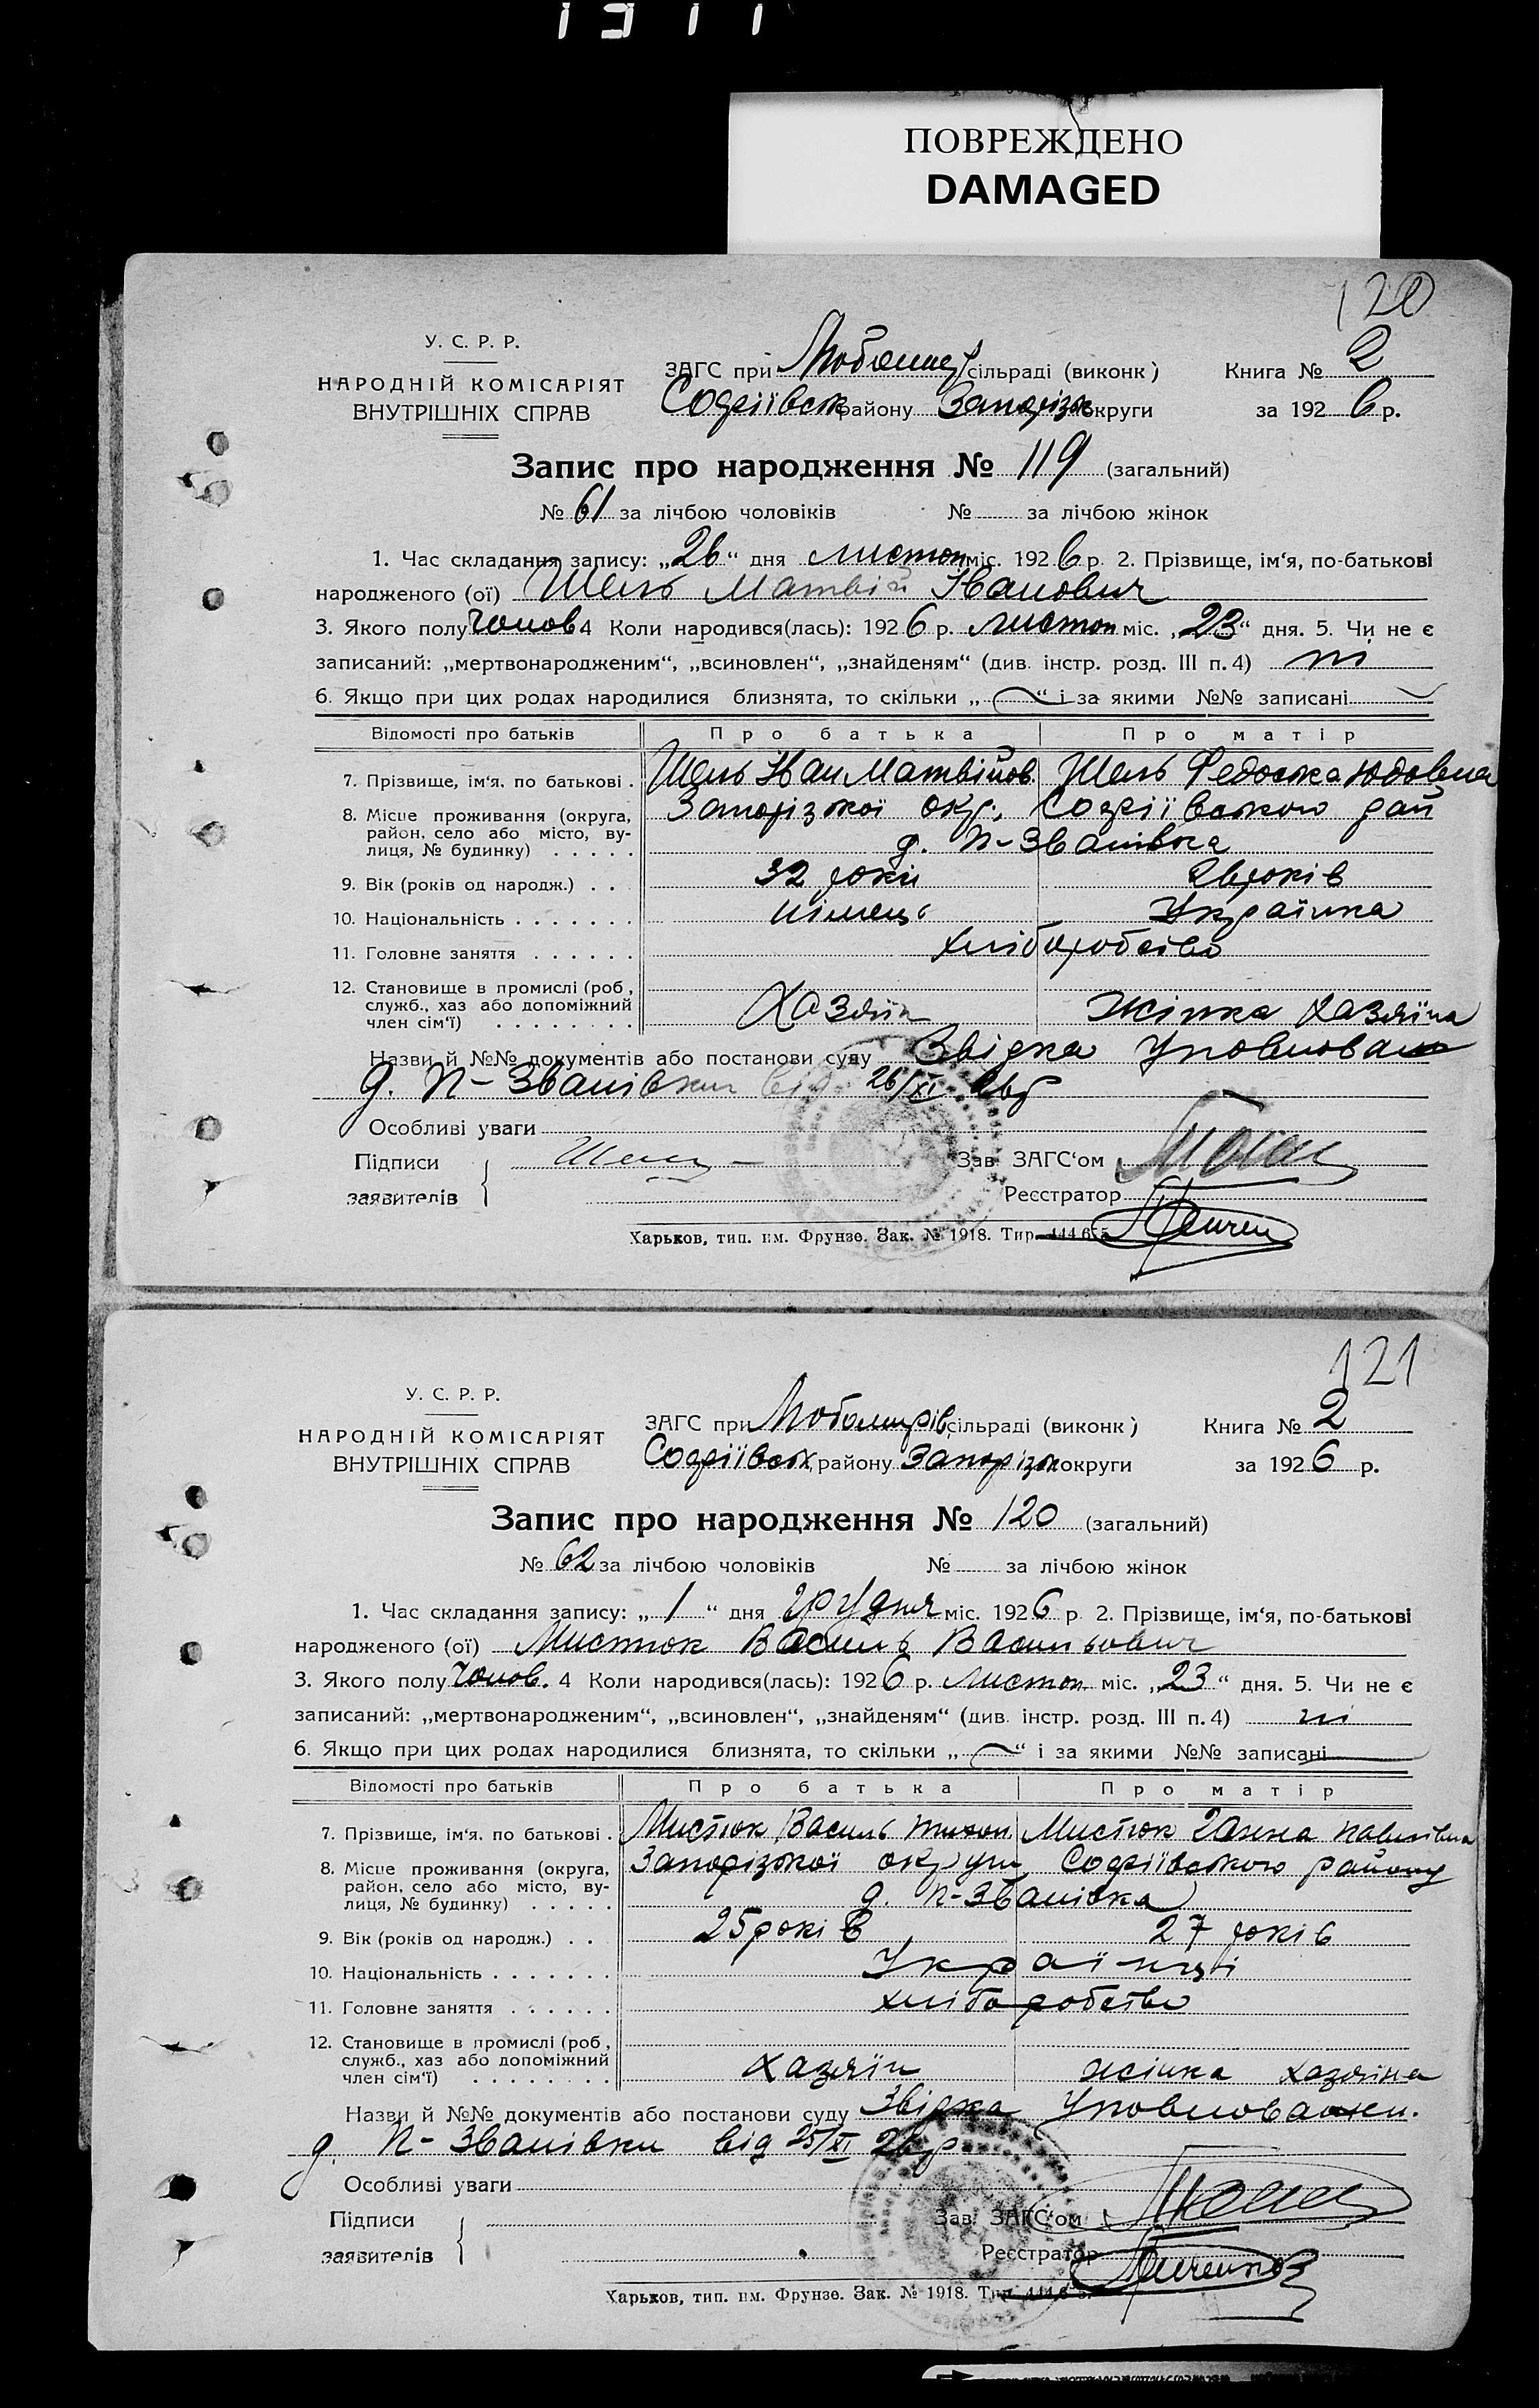 ПОВРЕЖДЕНО
DAMAGED
120
У. С. Р. Р.
НАРОДНІЙ КОМІСАРІЯТ
ВНУТРІШНІХ СПРАВ
ЗАГС при сільраді (виконк)
Софіївськ району Запорізьк округи
Книга № 2
за 1926 р.
Запис про народження № 119 (загальний)
№ 61 за лічбою чоловіків № за лічбою жінок
1. Час складання запису: „26“ дня листоп міс. 1926 р. 2. Прізвище, ім‘я, по-батькові
народженого (ої) Шель Матвій Іванович
3. Якого полу Чолов 4 Коли народився(лась): 1926 р. листоп міс. „23“ дня. 5. Чи не є
записаний: „мертвонародженим“, „всиновлен“, „знайденям“ (див. інстр. розд. III п. 4) ні
6. Якщо при цих родах народилися близнята, то скільки „ “ і за якими №№ записані
Відомості про батьків Про батька Про матір
7. Прізвище, ім‘я, по батькові . Шель Іван Матвійов. Шель Федоська Юдовна
8. Місце проживання (округа, район, село або місто, вулиця, № будинку) Запорізької окр., Софіївського рай
д. П-Званівка
9. Вік (років од народж.) . . 32 роки 26 років
10. Національність німець Українка
11. Головне заняття хліборобство
12. Становище в промислі (роб, служб., хаз або допоміжний член сім‘ї) Хазяїн Жінка хазяїна
Назви й №№ документів або постанови суду Звідка Уповноважен
д. П-Званівки від 26/XI 26р
Особливі уваги
Підписи
заявителів
Зав ЗАГС‘ом
Реєстратор
Харьков, тип. им. Фрунзе. Зак. № 1918. Тир. 444.675
121
У. С. Р. Р.
НАРОДНІЙ КОМІСАРІЯТ
ВНУТРІШНІХ СПРАВ
ЗАГС при Любомирів сільраді (виконк)
Софіївськ району Запорізьк округи
Книга № 2
за 1926 р.
Запис про народження № 120 (загальний)
№ 62 за лічбою чоловіків № за лічбою жінок
1. Час складання запису: „1“ дня грудня міс. 1926 р 2. Прізвище, ім‘я, по-батькові
народженого (ої) Мистюк Василь Васильович
3. Якого полу Чолов. 4 Коли народився(лась): 1926 р. листоп міс. „23“ дня. 5. Чи не є
записаний: „мертвонародженим“, „всиновлен“, „знайденям“ (див. інстр. розд. III п. 4) ні
6. Якщо при цих родах народилися близнята, то скільки „ “ і за якими №№ записані
Відомості про батьків Про батька Про матір
7. Прізвище, ім‘я, по батькові . Мистюк Василь Тихон Мистюк Ганна Павлівна
8. Місце проживання (округа, район, село або місто, вулиця, № будинку) Запорізької округи, Софіївського району
д. П-Званівка
9. Вік (років од народж.) . . 25 років 27 років
10. Національність Українці
11. Головне заняття хліборобство
12. Становище в промислі (роб, служб., хаз або допоміжний член сім‘ї) хазяїн жінка хазяїна
Назви й №№ документів або постанови суду Звідка Уповноважен.
д. П-Званівки від 25/XI 26р
Особливі уваги
Підписи
заявителів
Зав ЗАГС‘ом
Реєстратор
Харьков, тип. им. Фрунзе. Зак. № 1918.